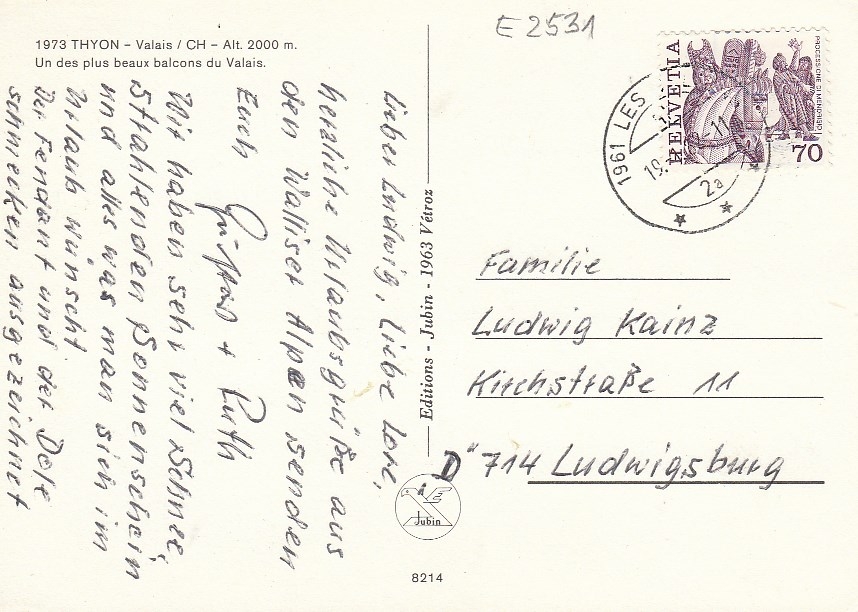 E 2531
1973 THYON – Valais / CH – Alt. 2000 m.
Un des plus beaux balcons du Valais.
Lieber Ludwig, Liebe Lore,
herzliche Urlaubsgrüße aus
den Walliser Alpen senden
Euch
Gustav + Ruth
Wir haben sehr viel Schnee,
strahlenden Sonnenschein
und alles was man sich im
Urlaub wünscht.
Der Fendant und der Dole
schmecken ausgezeichnet
Editions - Jubin - 1963 Vétroz
Jubin
8214
HELVETIA
PROCESSIONE DI MENDRISIO
70
1961 LES
19.
11
2a
Familie
Ludwig Kainz
Kirchstraße 11
D-714 Ludwigsburg